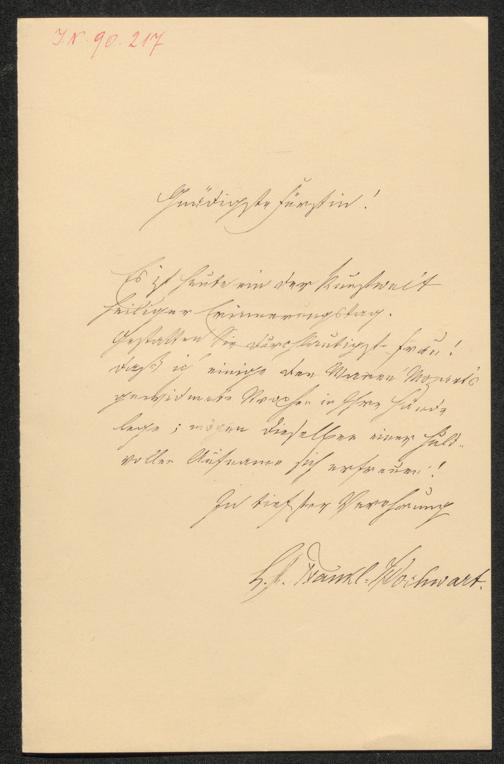 I.N. 90.217
Gnädigste Fürstin!
Es ist heute ein der Kunstwelt
heiliger Erinnerungstag.
Gestatten Sie durchlautigste Frau!
daß ich einige den Manen Mozart's
gewidmete Strophen in Ihre Hände
lege; mögen dieselben einer huld-
vollen Aufname sich erfreuen!
In tiefster Verehrung
L. A. Frankl-Hochwart.